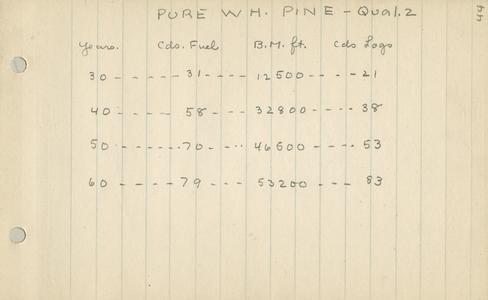 PURE WH. PINE - Qual. 2
Years. Cds. Fuel B.M. ft. Cds Logs
30 - - - - - 31 - - - - 12500 - - - - 21
40 - - - - - 58 - - - 32800 - - - - 38
50 - - - - - - 70 - - - - 46600 - - - - 53
60 - - - - - 79 - - - 53200 - - - 83